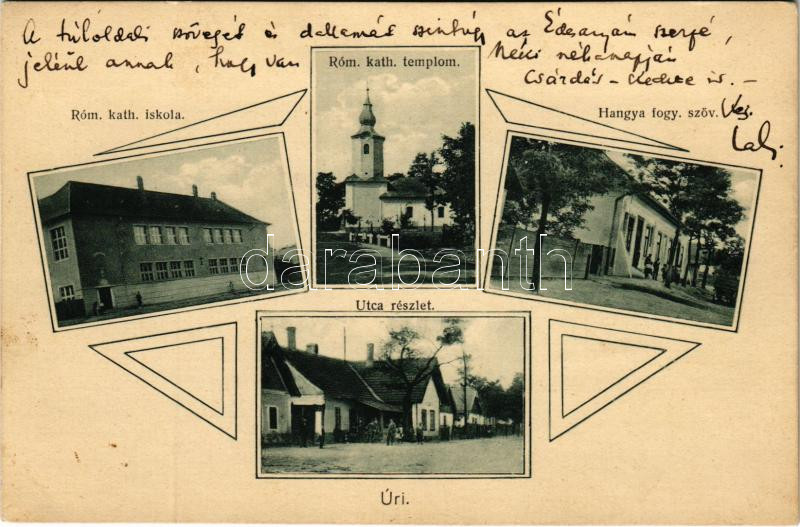 A túloldali szöveget és dallamát szintúgy az Édesanyám szerzé,
jeléül annak, hogy van Néki néhanapján
Csárdás
Róm. kath. templom.
Róm. kath. iskola.
Hangya fogy. szöv.
darabanth
Utca részlet.
Úri.